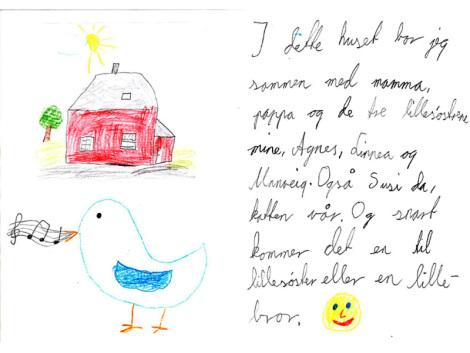 I dette huset bor jeg
sammen med mamma,
pappa og de tre lillesøstrene
mine, Agnes, Linnea og
Manneig. Også Susi da,
katten vår. Og snart
kommer det en til
lillesøster eller en lille-
bror.